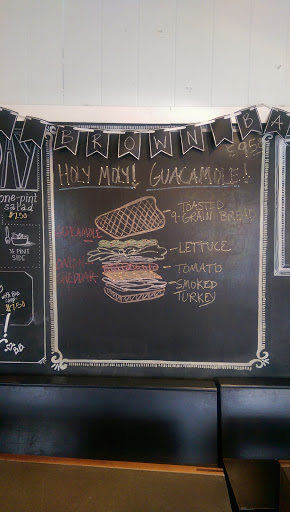 BROWN BA
$9.95
HOLY MOLY! GUACAMOLE!
TOASTED
9-GRAIN BREAD
GUACAMOLE
LETTUCE
TOMATO
CHEDDAR
SMOKED
TURKEY
one-pint
salad
$7.50
½ PINT
SIDE